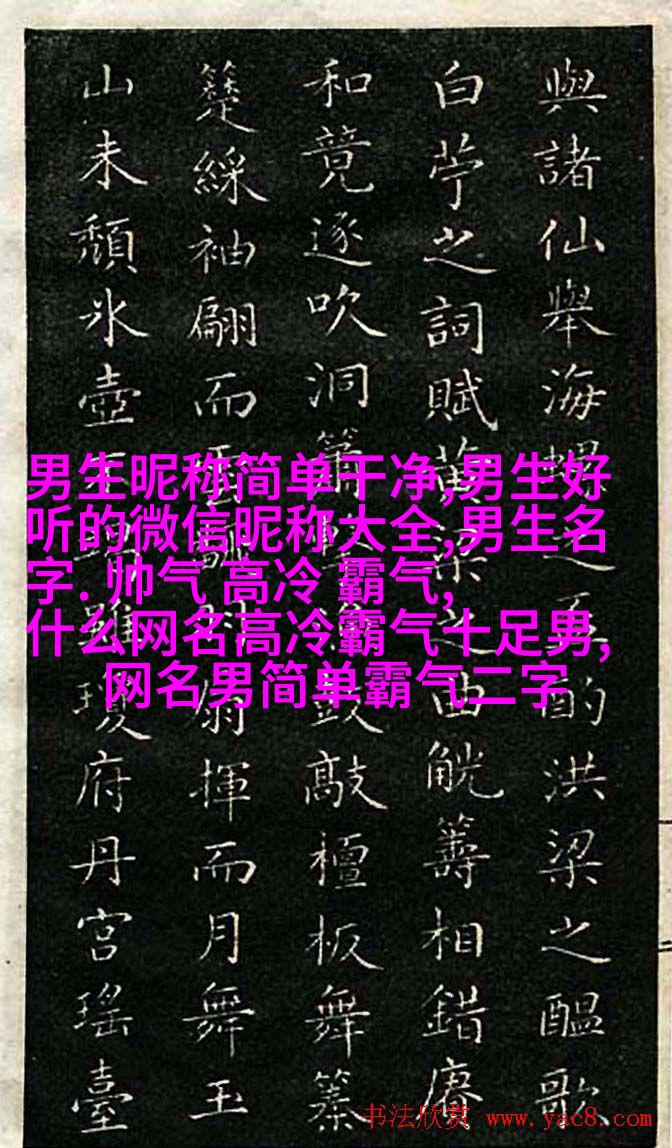 與諸仙舉海螺之酌洪梁之醖歌
白苧之詞賦黃梁之曲觥籌相錯賡
和竟逐吹洞簫鼓敲檀板舞
綵袖翩而扇揮而月舞玉
山未頹氷壺雖瓊府丹宮瑤臺
男生昵称简单干净,男生好
听的微信昵称大全,男生名
字. 帅气 高冷 霸气,
什么网名高冷霸气十足男,
网名男简单霸气二字
书法欣赏 www.yac8.com